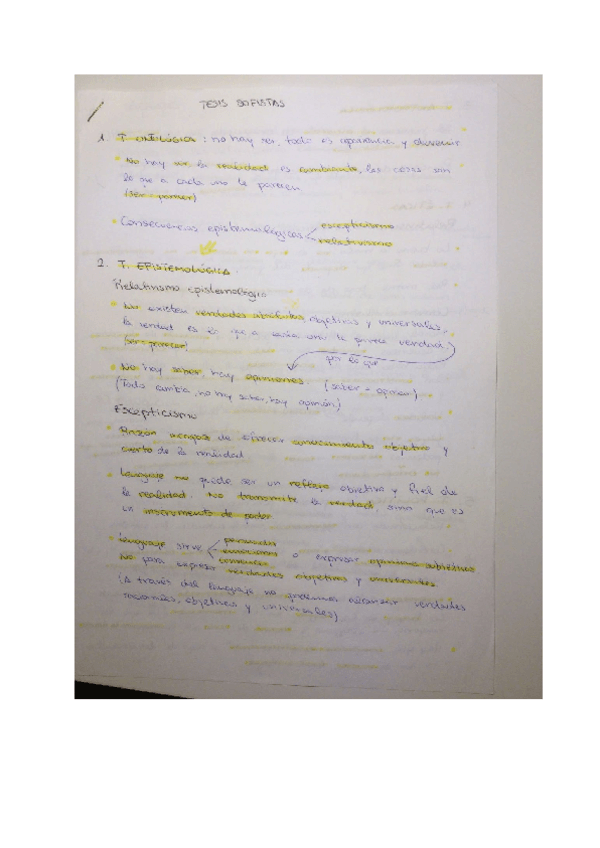 TESIS SOFISTAS
1. T. ONTOLÓGICA: no hay ser, todo es apariencia y devenir
• No hay ser, la realidad es cambiante, las cosas son
lo que a cada uno le parecen
(ser = parecer)
• Consecuencias epistemológicas escepticismo
relativismo
2. T. EPISTEMOLÓGICA.
Relativismo epistemológico
• No existen verdades absolutas, objetivas y universales,
la verdad es lo que a cada uno le parece verdad
(ser = parecer)
por lo que
• No hay saber, hay opiniones. (saber = opinar)
(Todo cambia, no hay saber, hay opinión)
Escepticismo
• Razón incapaz de ofrecer conocimiento objetivo y
cierto de la realidad
• Lenguaje no puede ser un reflejo objetivo y fiel de
la realidad. No transmite la verdad, sino que es
un instrumento de poder
• Lenguaje sirve persuadir
emocionar o expresar opiniones subjetivas
No para expresar verdades objetivas y
(A través del lenguaje no podemos alcanzar verdades
racionales, objetivas y universales)